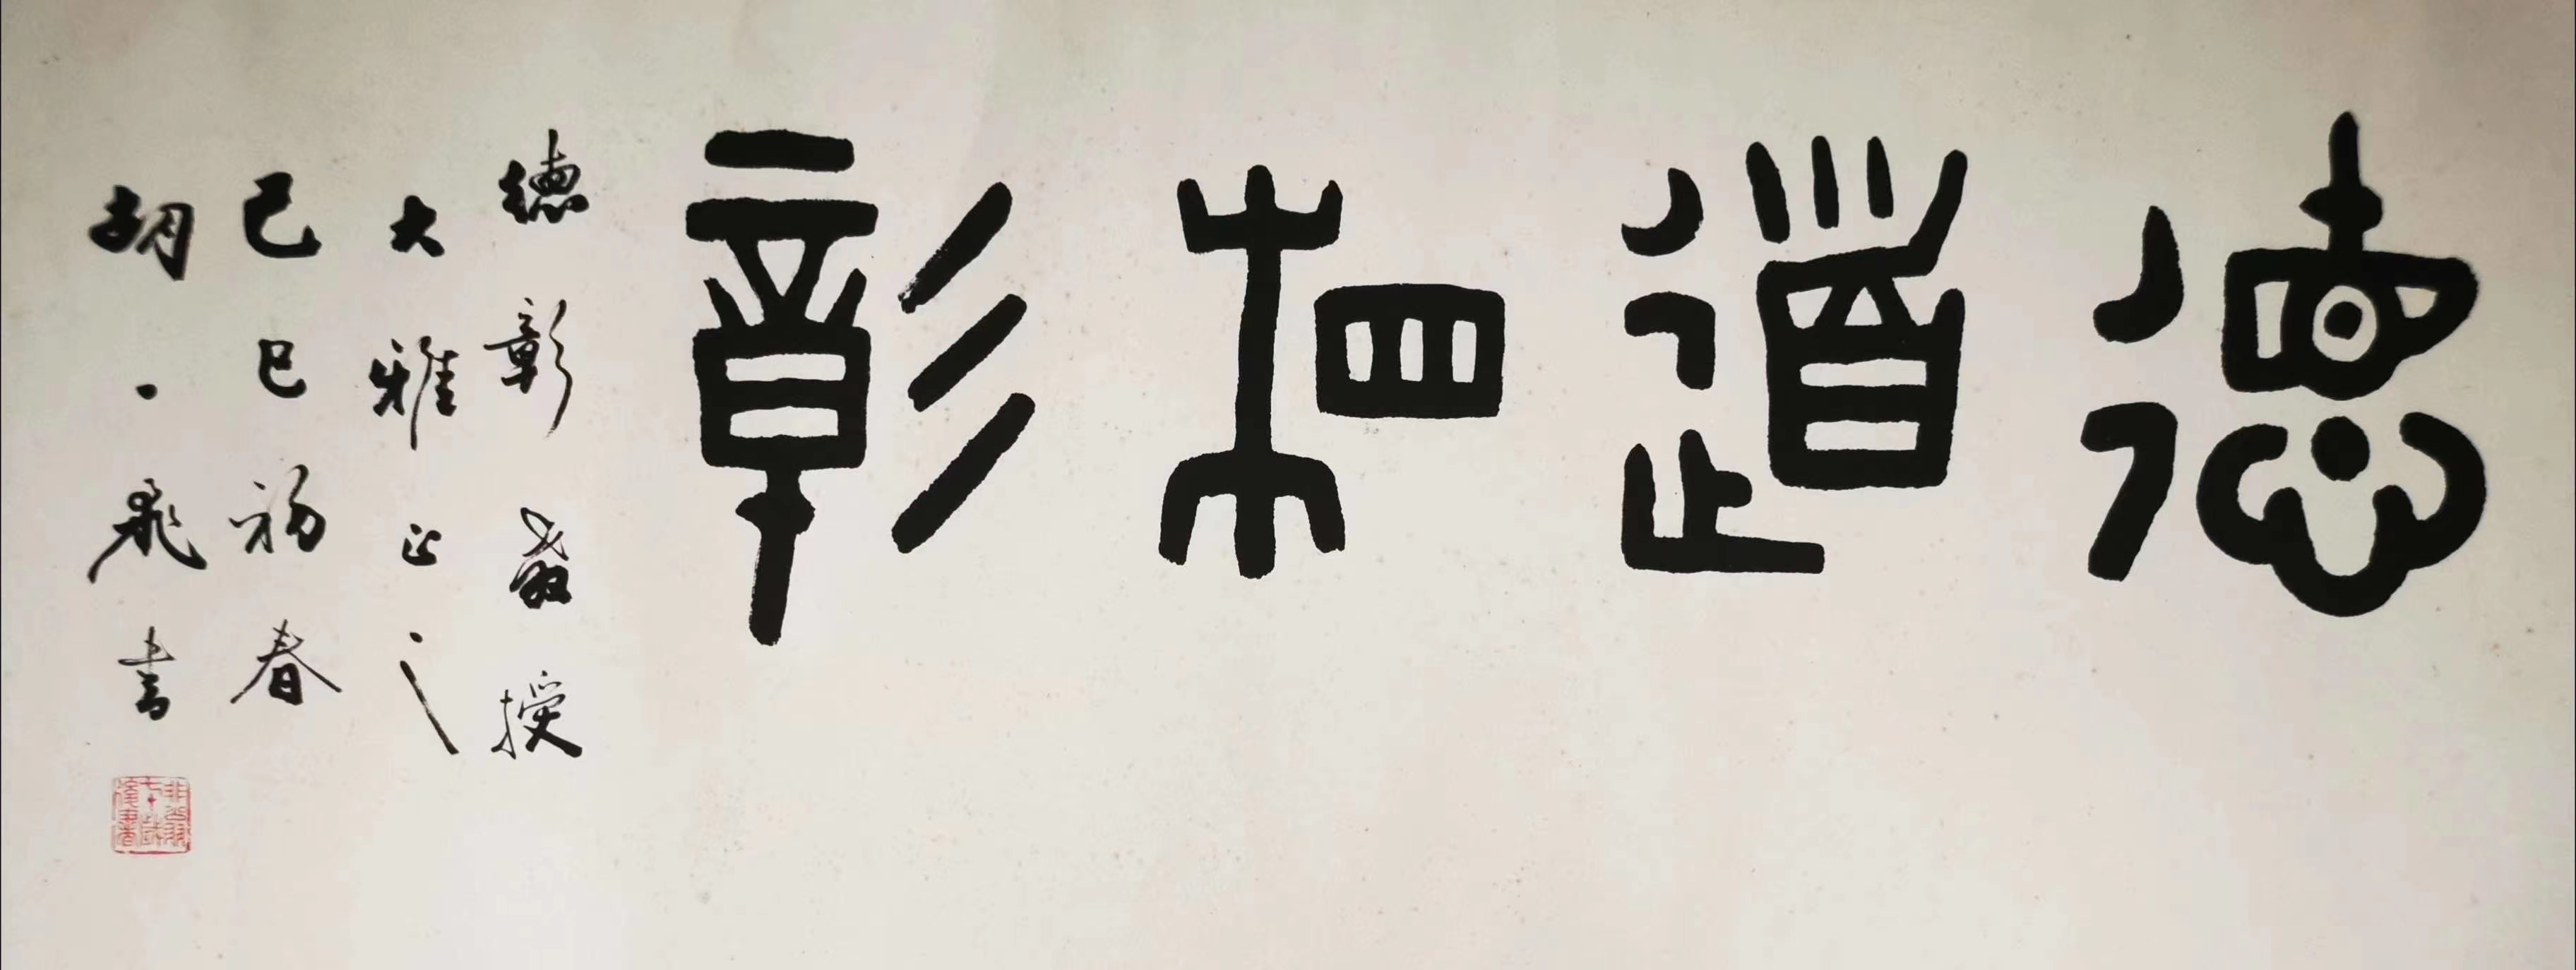 德道相彰
德彰教授
大雅正之
己巳初春
胡一飛書